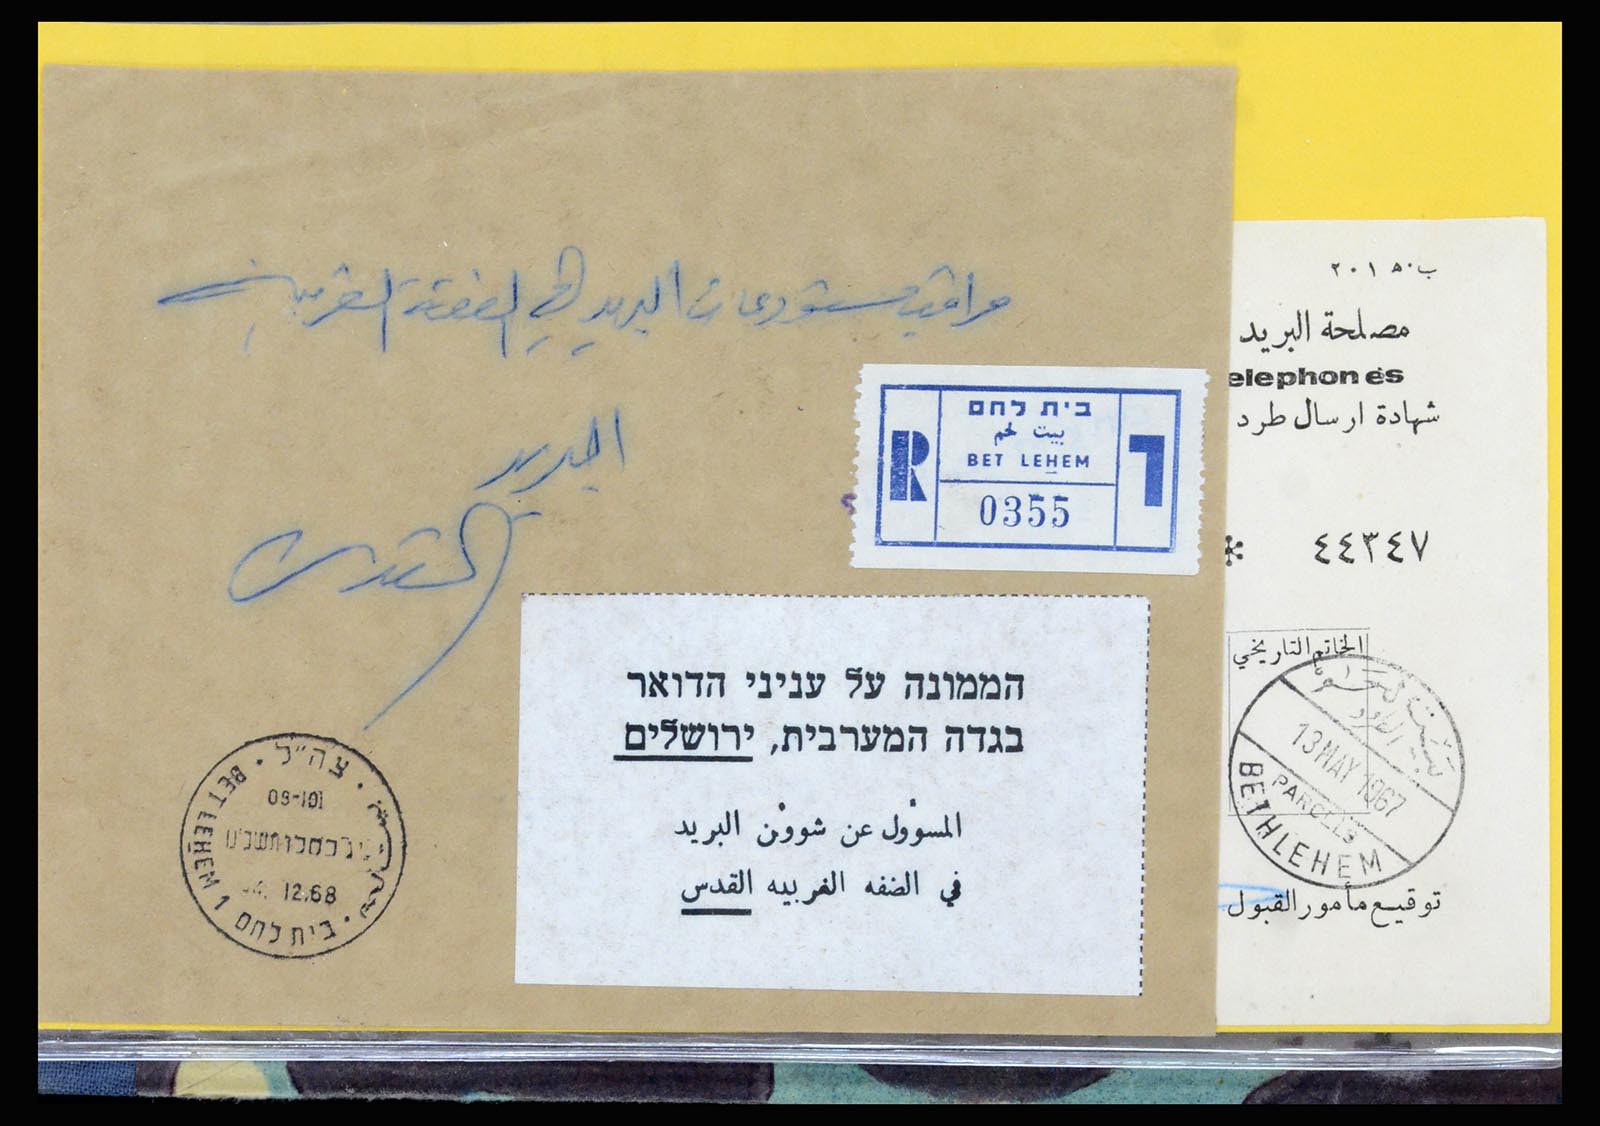 مراقب مستودعات البريد في الضفة الغربية
البريد
القدس
R
בית לחם
بيت لحم
BET LEHEM
0355
ר
הממונה על עניני הדואר
בגדה המערבית, ירושלים
المسوول عن شوون البريد
في الضفه الغربيه القدس
צה"ל
BET LEHEM 1
09-10
12.68
בית לחם
ب ٥٠ ٢٠١
مصلحة البريد
elephones
شهادة ارسال طرد
٤٤٣٤٧
الخاتم التاريخي
13 MAY 1967
PARCELS
BETHLEHEM
توقيع مأمور القبول